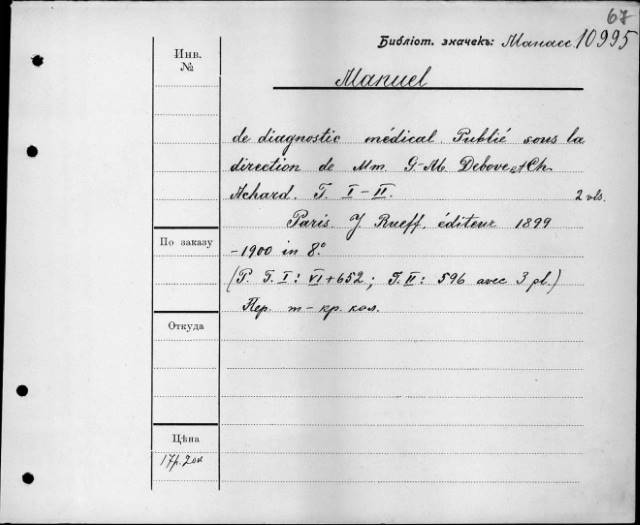 67
Библіот. значекъ: Манасс. 10995
Инв.
№
Manuel
de diagnostic médical. Publié sous la
direction de Mm. G.-M. Debove et Ch.
Achard. T. I-II. 2 vls.
Paris. J. Rueff, éditeur 1899
По заказу
-1900 in 8°
(P. T. I: VI+652; T. II: 596 avec 3 pl.)
Пер. т-кр. кол.
Откуда
Цѣна
17р.